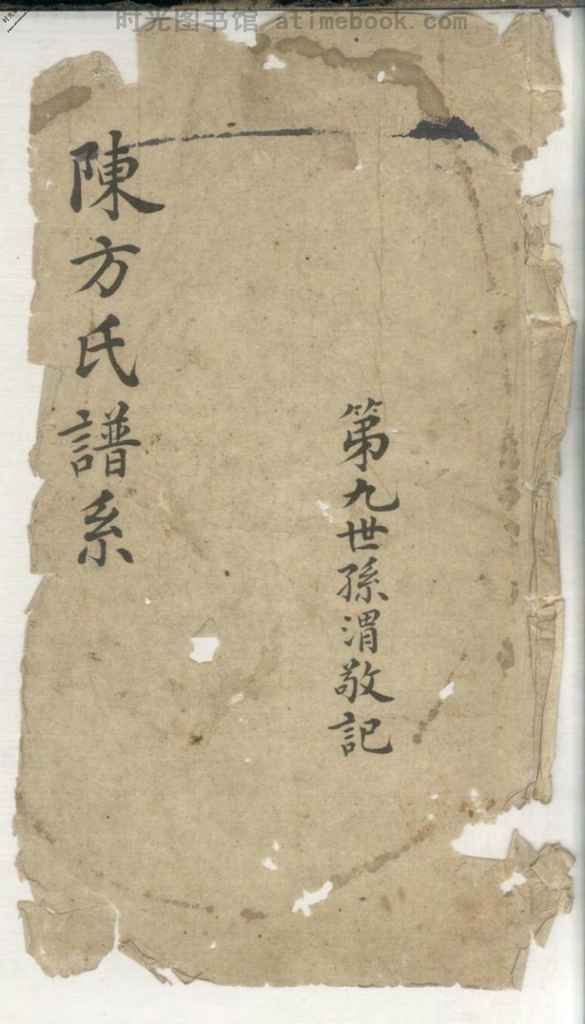 时光图书馆 atimebook.com
第九世孫渭敬記
陳方氏譜系